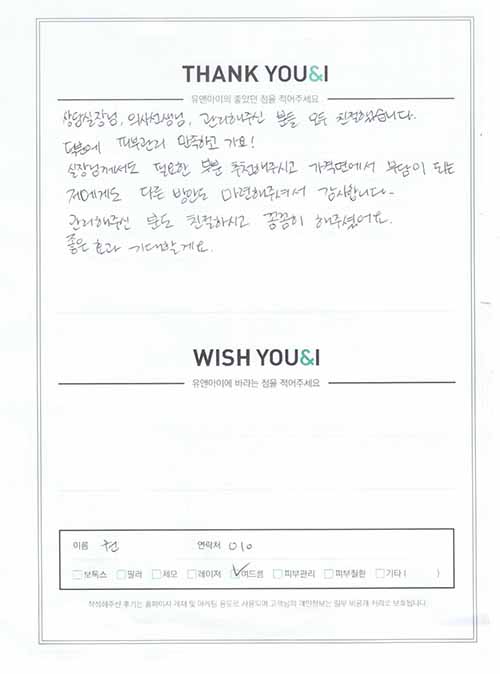 THANK YOU&I
유앤아이의 좋았던 점을 적어주세요
상담실장님, 의사선생님, 관리해주신 분들 모두 친절했습니다.
덕분에 피부관리 만족하고 가요!
실장님께서도 필요한 부분 추천해주시고 가격면에서 부담이 되는
저에게도 다른 방안도 마련해주셔서 감사합니다-
관리해주신 분도 친절하시고 꼼꼼히 해주셨어요.
좋은 효과 기대할게요.
WISH YOU&I
유앤아이에 바라는 점을 적어주세요
이름 전 연락처 010
보톡스 필러 제모 레이저 여드름 피부관리 피부질환 기타 ( )
작성해주신 후기는 홈페이지 게재 및 마케팅 용도로 사용되며 고객님의 개인정보는 일부 비공개 처리로 보호됩니다.